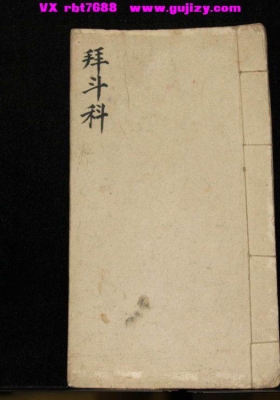 VX rbt7688 www.gujizy.com
拜斗科